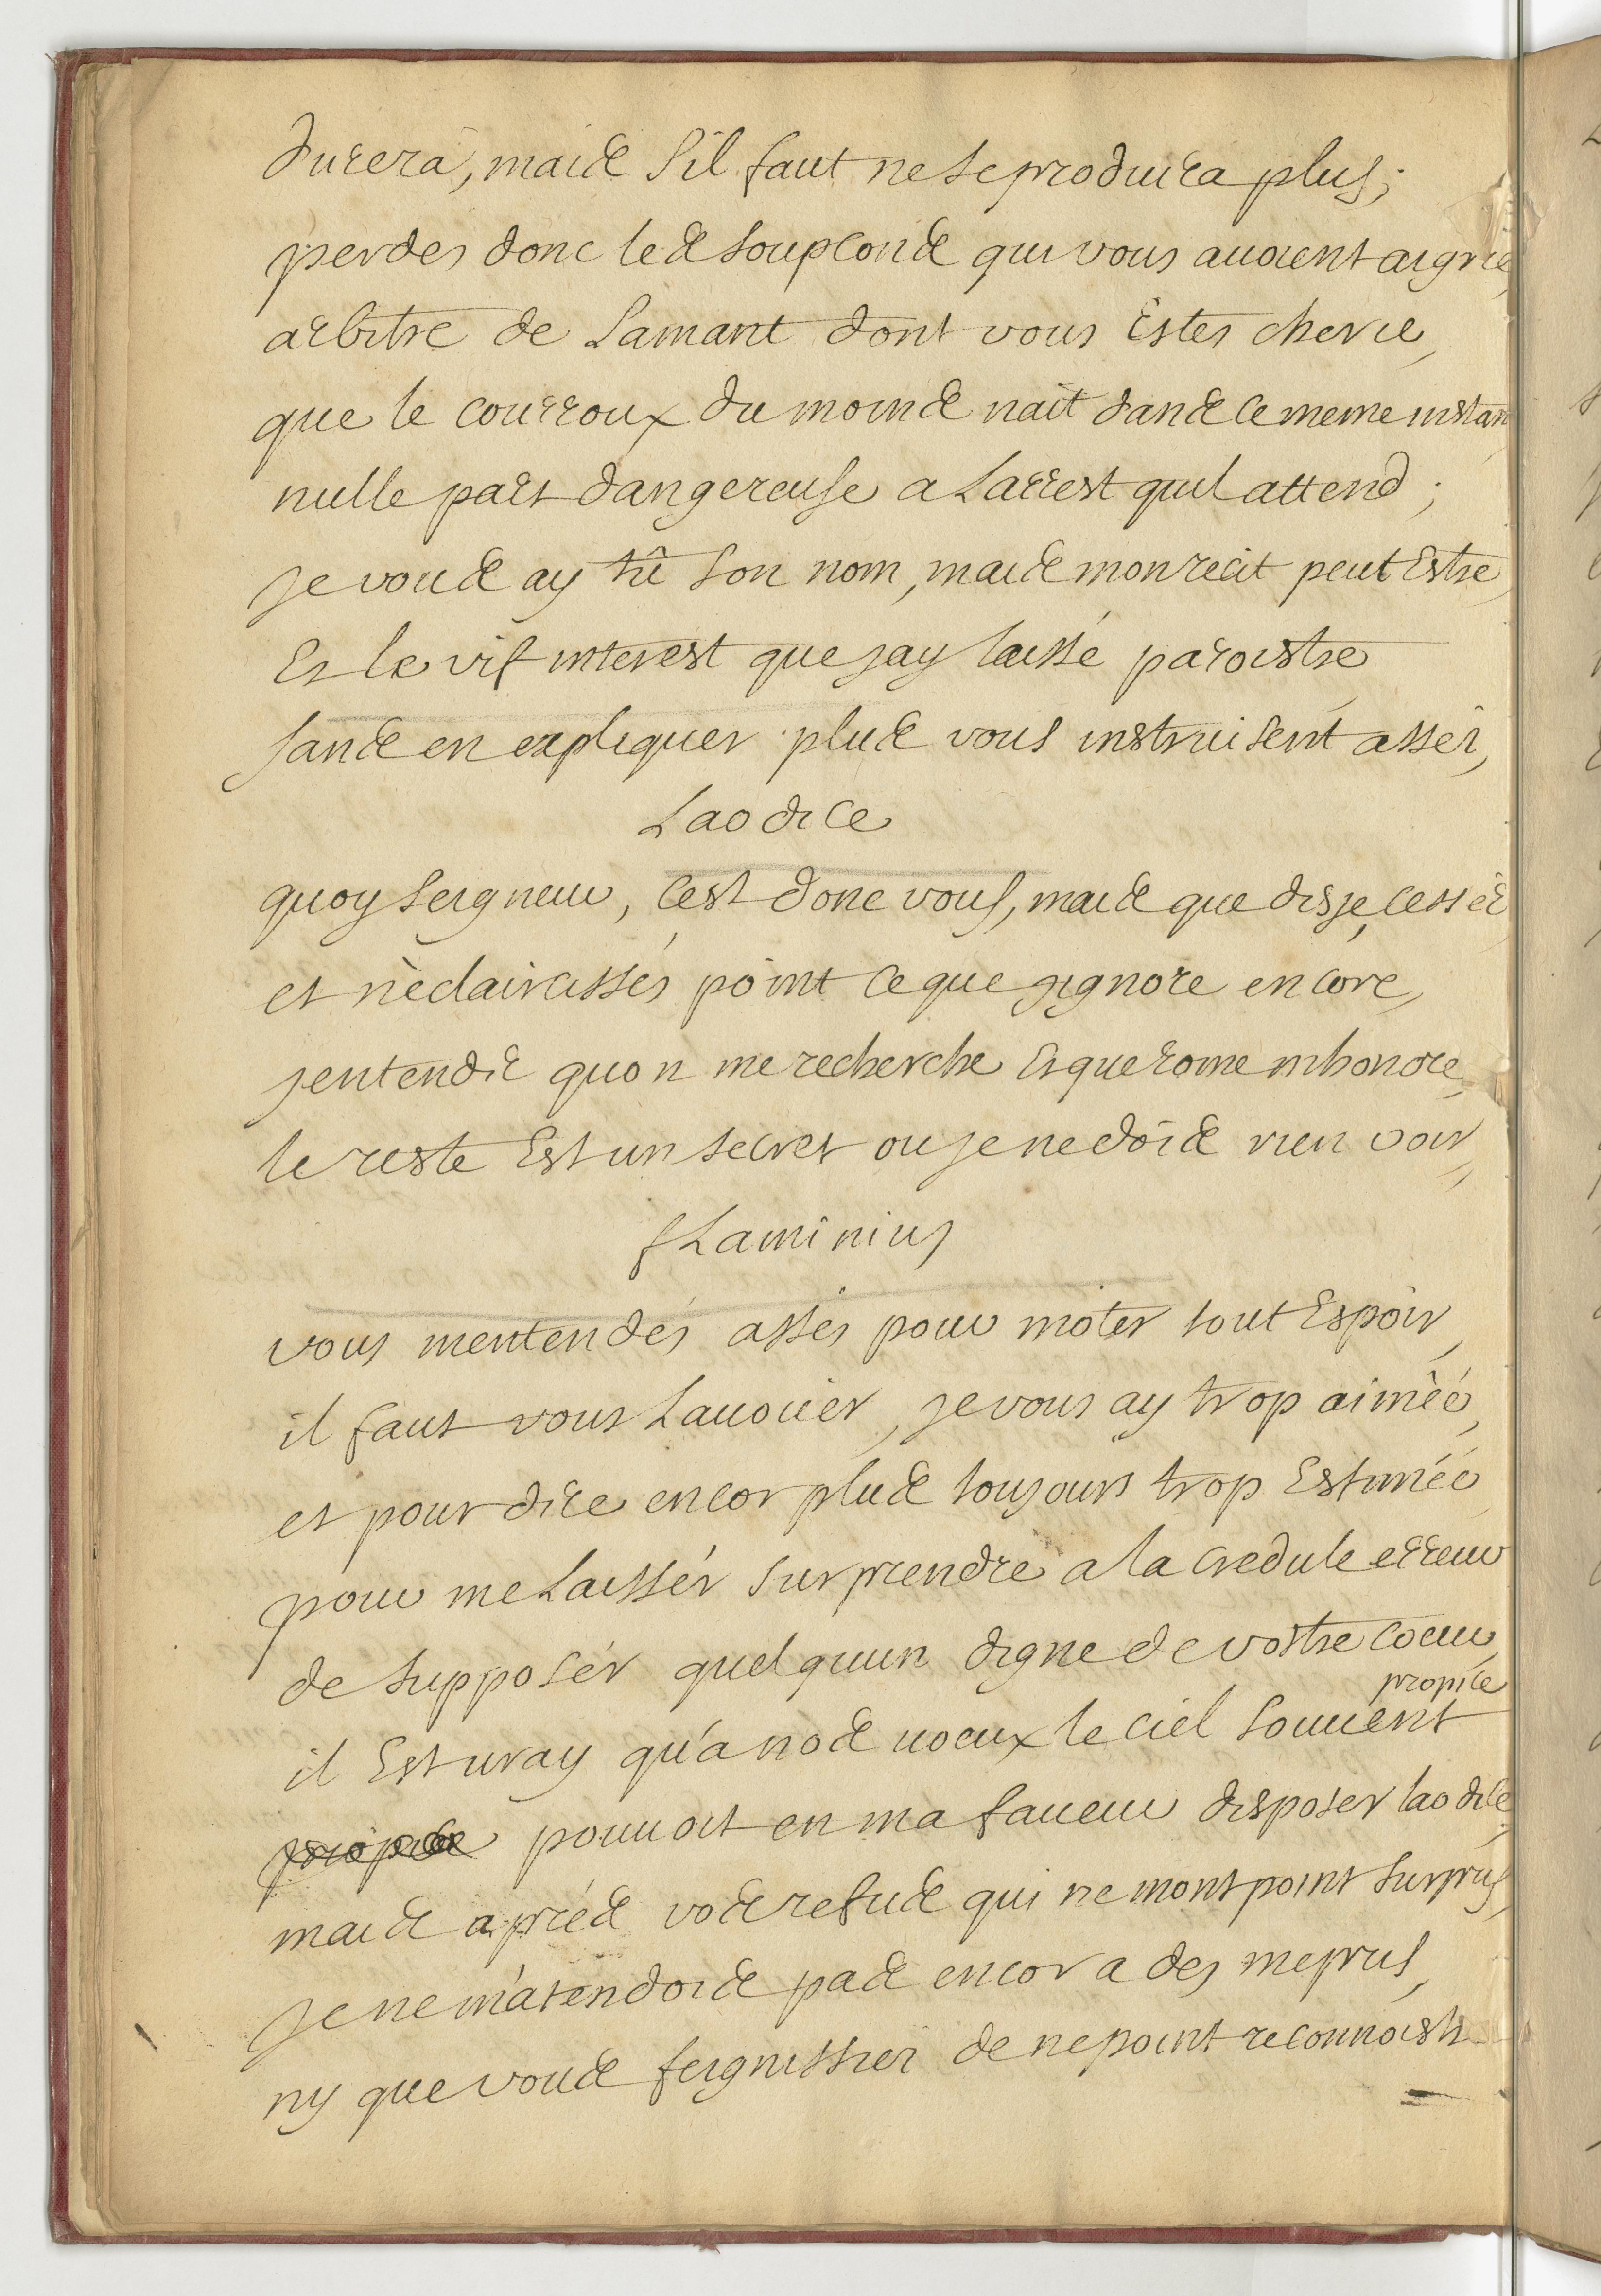 durera, mais s'il faut ne se produira plus;
perdes donc les soupcons qui vous auoient aigrie
arbitre de Lamant dont vous Estes cherie,
que le courroux du moins nait dans ce meme instan
nulle part dangereuse a Larrest quil attend;
je vous ay tû son nom, mais mon recit peut Estre,
Et le vif interest que jay laissé paroistre
sans en expliquer plus vous instruisent assés,
Laodice
quoy seigneur, cest donc vous, mais que disje, cessés
et n'éclaircissés point ce que jignore encore,
jentends quon me recherche Et que rome mhonore,
le reste Est un secret ou je ne dois rien voir,
fLaminius
vous mentendés assés pour môter tout Espoir,
il faut vous Lauoüer, je vous ay trop aimée,
et pour dire encor plus toujours trop Estimée
pour me Laissér surprendre a la credule erreur
de supposér quelquun digne de vostre coeur,
propice
il Est vray qu'a nos uoeux le ciel souuent
propice pouuoit en ma faueur disposer laodice,
mais aprés vos refus qui ne mont point surpris,
je ne m'atendois pas encor a des mepris,
ny que vous feignissiés de ne point reconnoistr